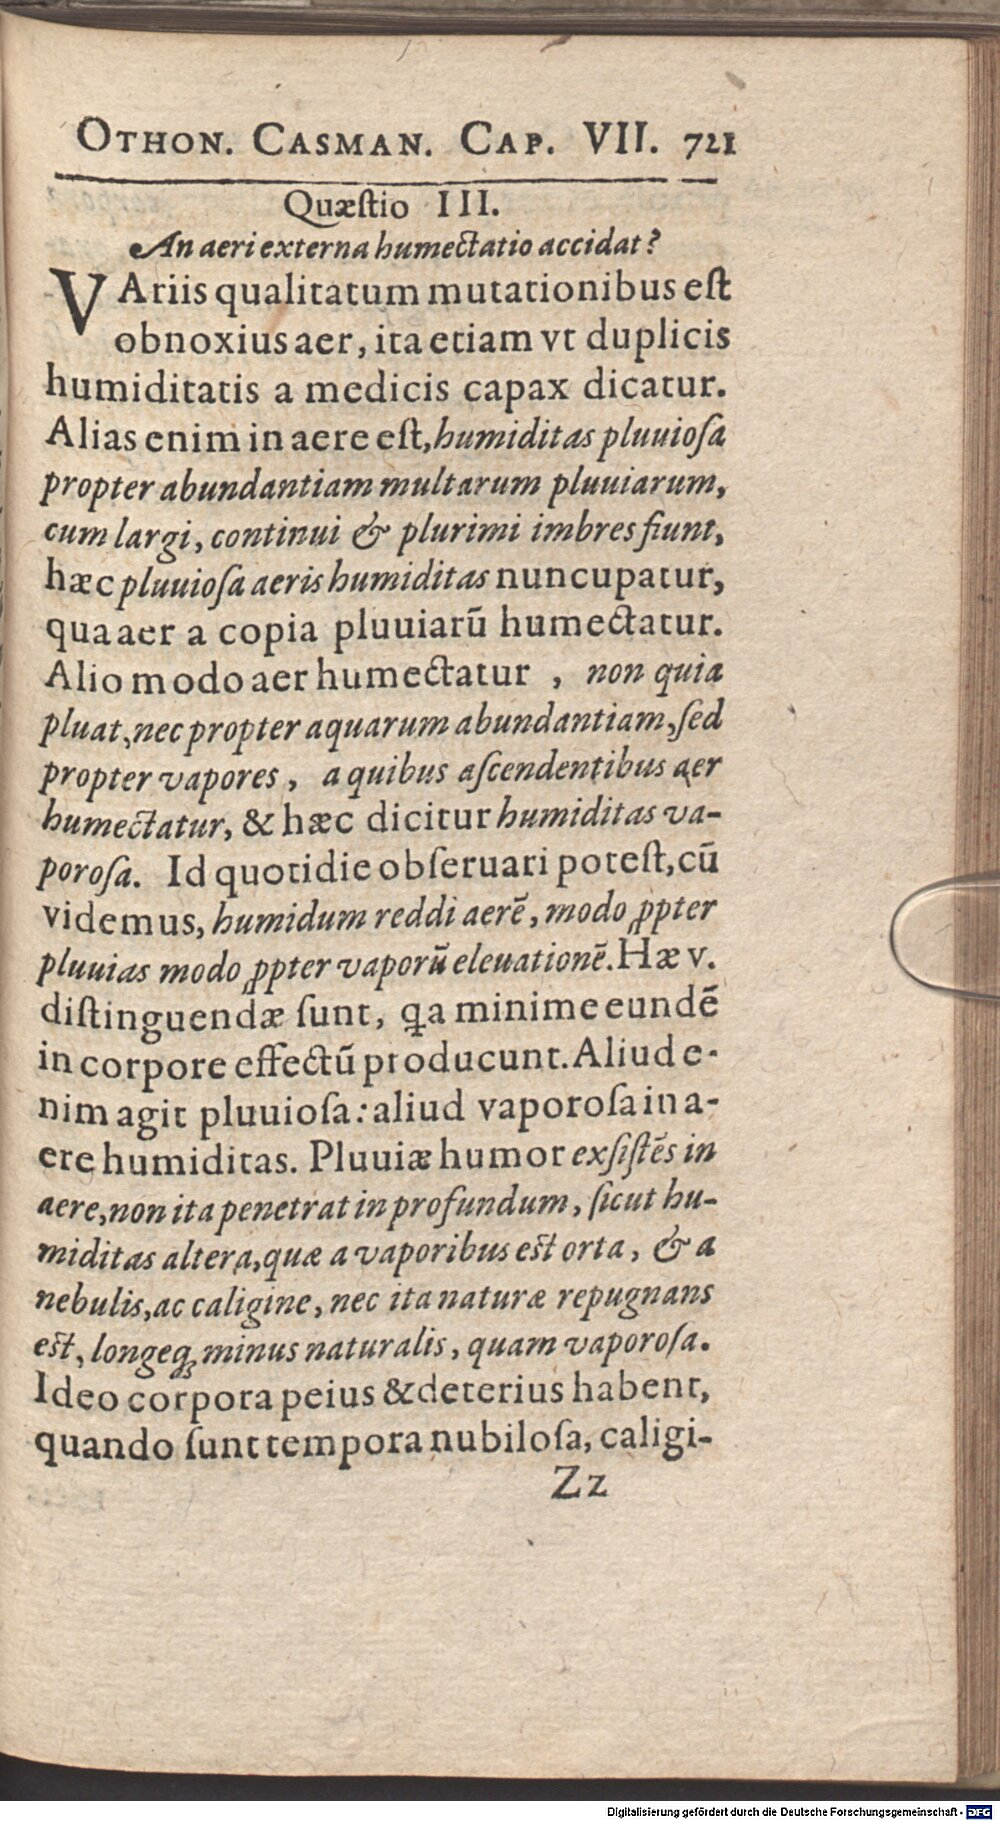 OTHON. CASMAN. CAP. VII. 721
Quæſtio III.
An aeri externa humectatio accidat?
VAriis qualitatum mutationibus eſt
obnoxius aer, ita etiam vt duplicis
humiditatis a medicis capax dicatur.
Alias enim in aere eſt, humiditas pluuioſa
propter abundantiam multarum pluuiarum,
cum largi, continui & plurimi imbres fiunt,
hæc pluuioſa aeris humiditas nuncupatur,
qua aer a copia pluuiarū humectatur.
Alio modo aer humectatur, non quia
pluat, nec propter aquarum abundantiam, ſed
propter vapores, a quibus aſcendentibus aer
humectatur, & hæc dicitur humiditas va-
poroſa. Id quotidie obſeruari poteſt, cū
videmus, humidum reddi aerē, modo ꝓpter
pluuias modo ꝓpter vaporū eleuationē. Hæ v.
diſtinguendæ ſunt, qa minime eundē
in corpore effectū producunt. Aliud e-
nim agit pluuioſa: aliud vaporoſa in a-
ere humiditas. Pluuiæ humor exſiſtēs in
aere, non ita penetrat in profundum, ſicut hu-
miditas altera, quæ a vaporibus eſt orta, & a
nebulis, ac caligine, nec ita naturæ repugnans
eſt, longeq; minus naturalis, quam vaporoſa.
Ideo corpora peius & deterius habent,
quando ſunt tempora nubiloſa, caligi-
Zz
Digitalisierung gefördert durch die Deutsche Forschungsgemeinschaft - DFG